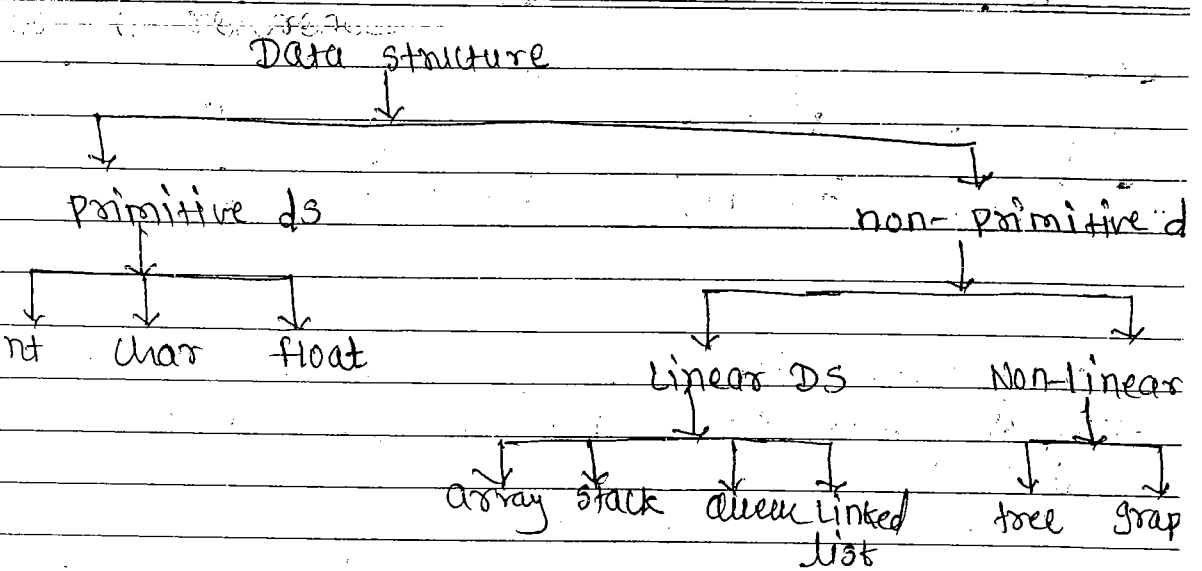 Data structure
primitive ds
non-primitive d
nt char float
Linear DS Non-linear
array stack queue Linked tree grap
list